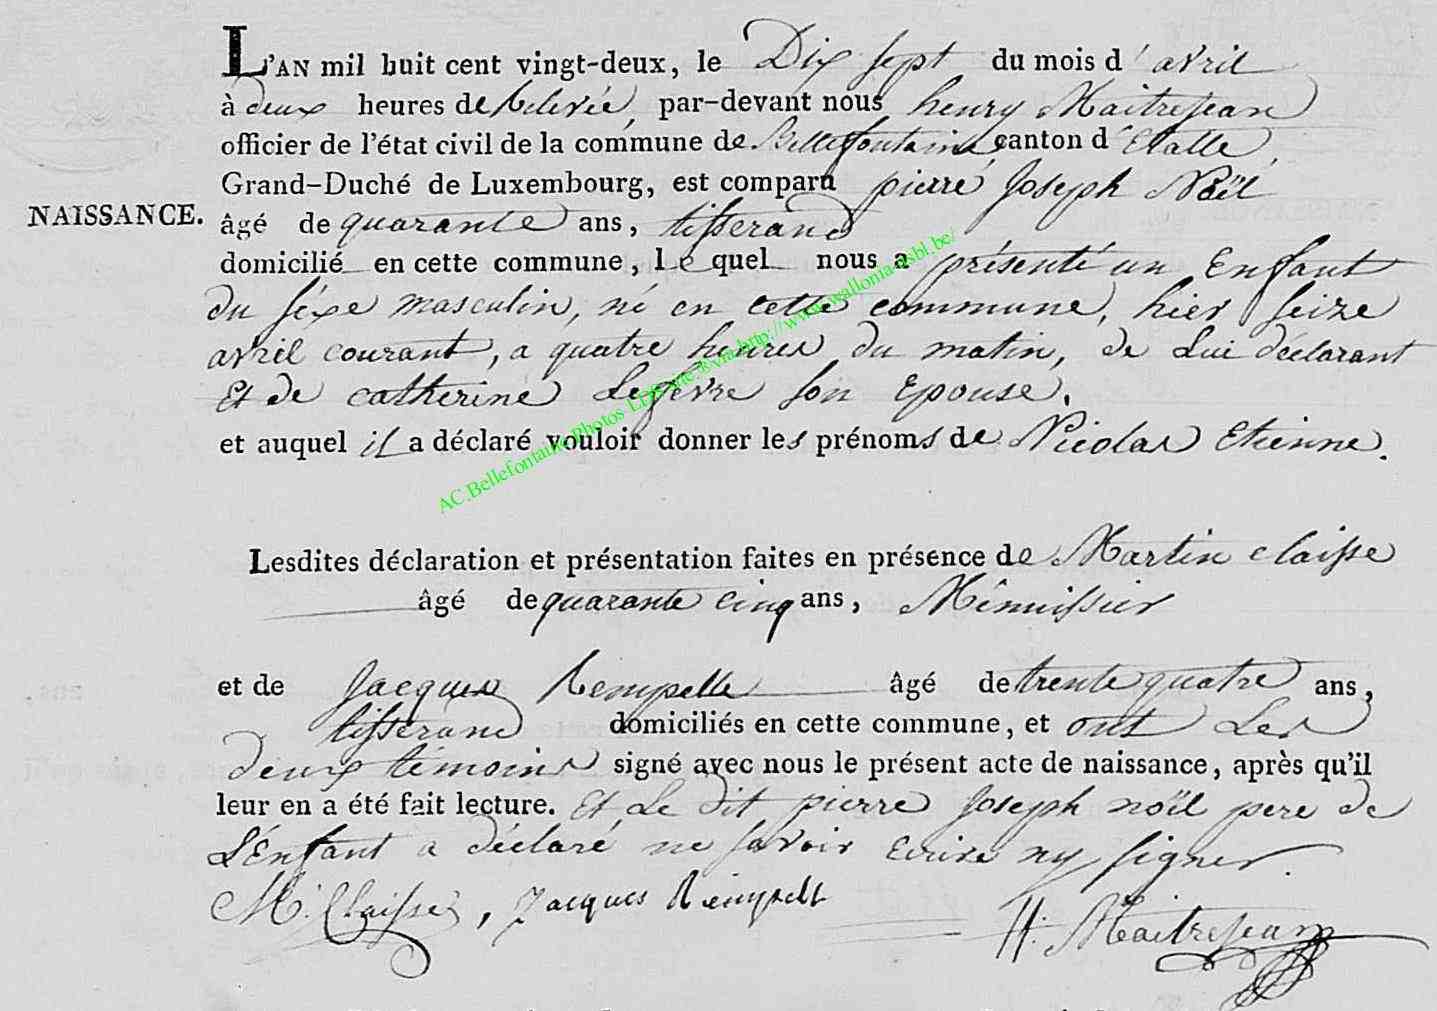 L'AN mil huit cent vingt-deux, le Dix sept du mois d'avril
à deux heures de Relevée, par-devant nous henry Maitrejean
officier de l'état civil de la commune de Bellefontaine canton d'Etalle,
Grand-Duché de Luxembourg, est comparu pierre Joseph Noël
NAISSANCE. âgé de quarante ans, tisserand
domicilié en cette commune, le quel nous a présenté un Enfant
du séxe masculin, né en cette commune, hier seize
avril courant, a quatre heures du matin, de Lui déclarant
Et de catherine Lefevre son Epouse.
et auquel il a déclaré vouloir donner les prénoms de Nicolas Etienne.
AC.Bellefontaine Photos via http://www.wallonia-asbl.be/
Lesdites déclaration et présentation faites en présence de Martin claisse
âgé de quarante cinq ans, Ménuissier
et de Jacques Rempelle âgé de trente quatre ans,
tisserand domiciliés en cette commune, et ont Les
deux témoins signé avec nous le présent acte de naissance, après qu'il
leur en a été fait lecture. Et Le dit pierre Joseph noël pere de
L'Enfant a déclaré ne savoir Ecrire ny signer.
M. Claisse, Jacques Rempelt H. Maitrejean